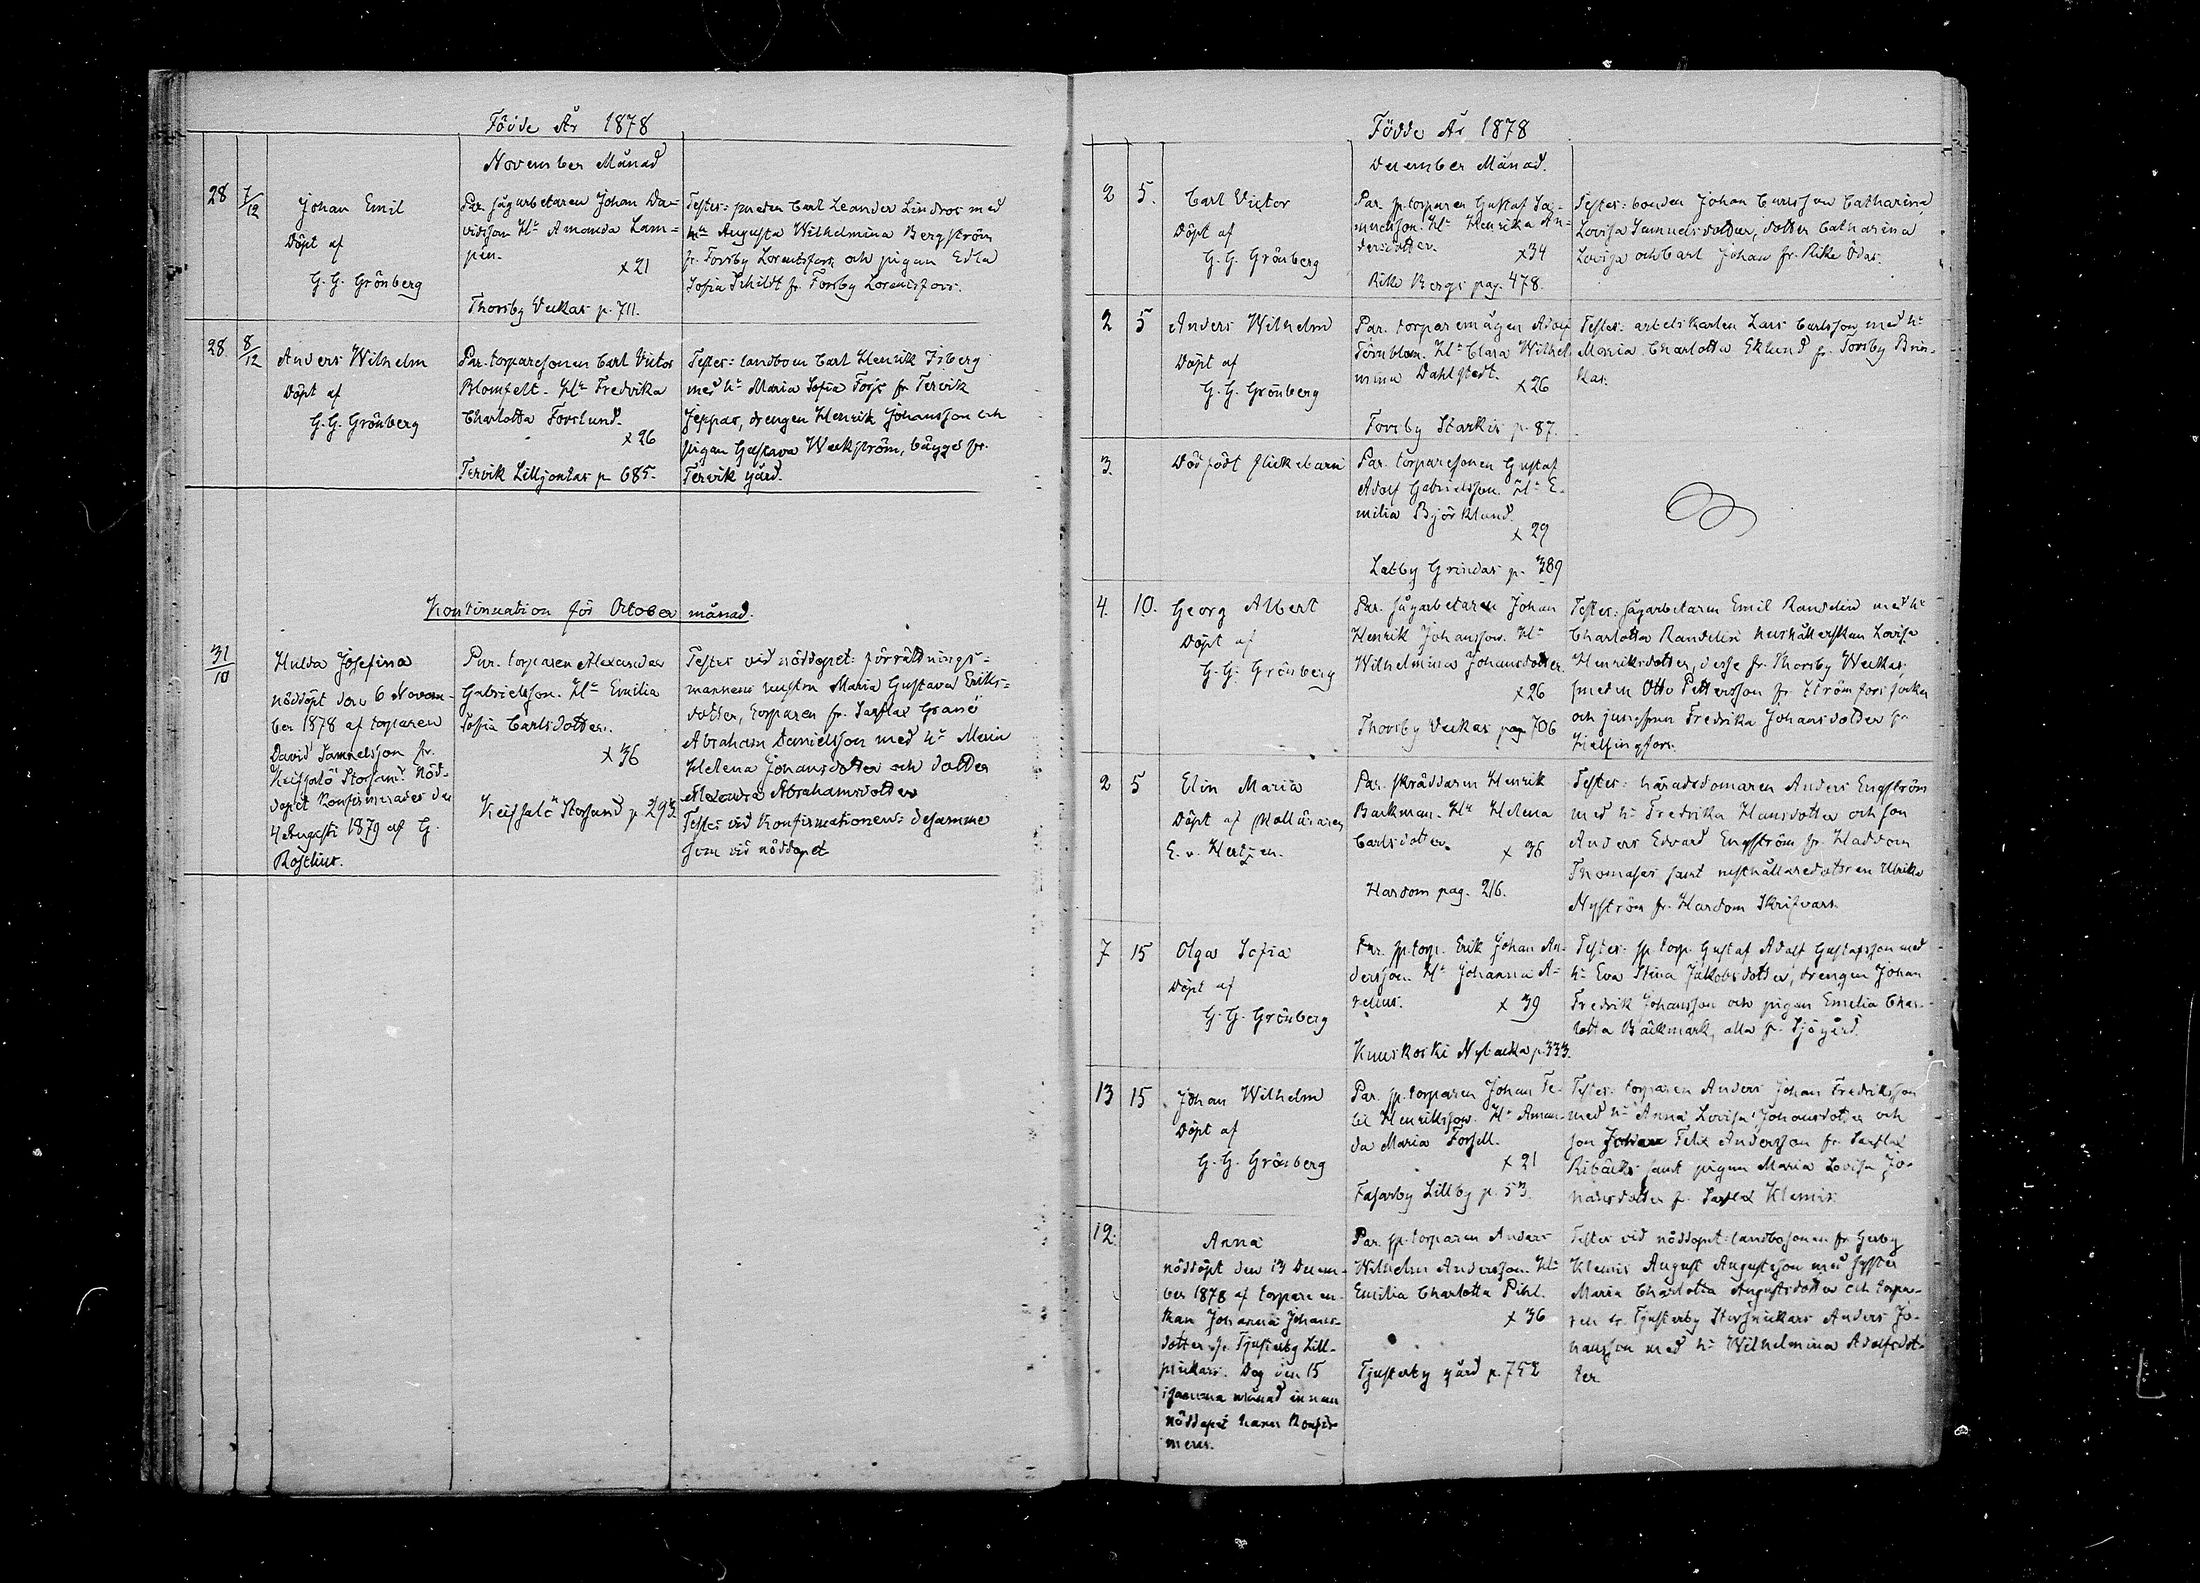 Födde År 1878
November Månad
28 7/12 Johan Emil
Döpt af
G. G. Grönberg
Par. sågarbetaren Johan Da=
vidsson Hu Amanda Lam=
pen.
x 21
Thorsby Veckas p. 711.
Testes: smeden Carl Leander Lindros med
hu Augusta Wilhelmina Bergström
fr. Forsby Lorentsfors och pigan Edla
Sofia Schildt fr. Forsby Lorentsfors.
28 8/12 Anders Wilhelm
Döpt af
G. G. Grönberg
Par. torparesonen Carl Victor
Blomfelt. Hu Fredrika
Charlotta Forslund.
x 26
Tervik Lilljontas p. 685.
Testes: landboen Carl Henrik Isberg
med hu Maria Sofia Forss fr Tervik
Jeppas, drengen Henrik Johansson och
pigan Gustava Weckström, bägge fr.
Tervik gård.
Kontinuation för October månad.
31/10 Hulda Josefina
nöddöpt den 6 Novem-
ber 1878 af torparen
David Samuelsson fr.
Keitsalö Storsund. Nöd-
dopet konfirmerades den
4 Augusti 1879 af G.
Roselius.
Par. torparen Alexander
Gabrielsson. Hu Emilia
Sofia Carlsdotter.
x 36
Keitsalö Storsund p. 293
Testes vid nöddopet: förrättnings=
mannens hustru Maria Gustava Eriks=
dotter, torparen fr. Sarflax Granö
Abraham Danielsson med hu Maria
Helena Johansdotter och dotter
Alexandra Abrahamsdotter
Testes vid konfirmationen: desamme
som vid nöddopet
Födde År 1878
December Månad.
2 5. Carl Victor
Döpt af
G. G. Grönberg
Par. sp. torparen Gustaf Sa-
muelsson. Hu Henrika An-
dersdotter.
x 34
Rike Bergs pag. 478.
Testes: bonden Johan Carlsson Catharina
Lovisa Samuelsdotter, dotter Catharina
Lovisa och Carl Johan fr. Rike Ödas.
2 5 Anders Wilhelm
Döpt af
G. G. Grönberg
Par. torparemågen Adolf
Törnblom. Hu Clara Wilhel-
mina Dahlstedt.
x 26
Forsby Starkis p. 87.
Testes: arbetskarlen Lars Carlsson med hu
Maria Charlotta Eklund fr. Forsby Brin-
kas.
3. Dödfödt flickebarn
Par. torparesonen Gustaf
Adolf Gabrielsson. Hu E-
milia Björklund.
x 29
Latby Grindas p. 389
4. 10. Georg Albert
Döpt af
G. G. Grönberg
Par. Sågarbetaren Johan
Henrik Johansson. Hu
Wilhelmina Johansdotter.
x 26
Thorsby Veckas pag 706
Testes: sågarbetaren Emil Randelin med hu
Charlotta Randelin hushållerskan Lovisa
Henriksdotter, desse fr. Thorsby Weckas,
smeden Otto Pettersson fr. Strömfors socken
och jungfrun Fredrika Johansdotter fr.
Helsingfors.
2 5 Elin Maria
Döpt af
E. v. Hertzen.
Par. skräddaren Henrik
Backman. Hu Helena
Carlsdotter.
x 36
Hardom pag. 216.
Testes: häradsdomaren Anders Engström
med hu Fredrika Hansdotter och son
Anders Edvard Engström fr. Haddom
Thomases samt rusthållaredottren Ulrika
Nyström fr. Hardom Skrifvars.
7 15 Olga Sofia
Döpt af
G. G. Grönberg
Par. sp. torp. Erik Johan An-
dersson. Hu Johanna A=
relius.
x 39
Kuuskoski Nybacka p. 333.
Testes: sp. torp. Gustaf Adolf Gustafsson med
hu Eva Stina Jakobsdotter, drengen Johan
Fredrik Johansson och pigan Emelia Char-
lotta Bäckmark, alla fr. Sjögård.
13 15 Johan Wilhelm
Döpt af
G. G. Grönberg
Par. sp. torparen Johan Fe-
lix Henriksson. Hu Aman-
da Maria Forsell.
x 21
Fasarby Lillby p. 53.
Testes: torparen Anders Johan Fredriksson
med hu Anna Lovisa Johansdotter och
son Johan Felix Andersson fr. Sarflax
Ribäcks samt pigan Maria Lovisa Jo-
hansdotter fr. Sarflax Klemis.
12. Anna
nöddöpt den 13 Decem-
ber 1878 af torparen-
kan Johanna Johans-
dotter fr. Tjusterby Lill-
snickars. Dog den 15
i samma månad innan
nöddopet hann konfir-
meras.
Par. sp. torparen Anders
Wilhelm Andersson. Hu
Emilia Charlotta Pihl.
x 36
Tjusterby gård p. 752
Testes vid nöddopet: landbosonen fr Gerby
Klemis August Augustsson med syster
Maria Charlotta Augustsdotter och torpa-
ren fr. Tjusterby Storsnickars Anders Jo-
hansson med hu Wilhelmina Adolfsdot-
ter